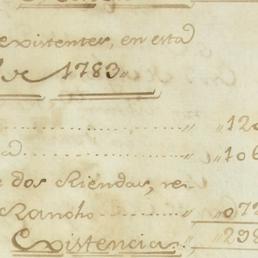 existentes, en esta
de 1783,,
,, 120
,, 106
e dos Riendas, re-
Rancho ,, 072
Existencia, ,, 298